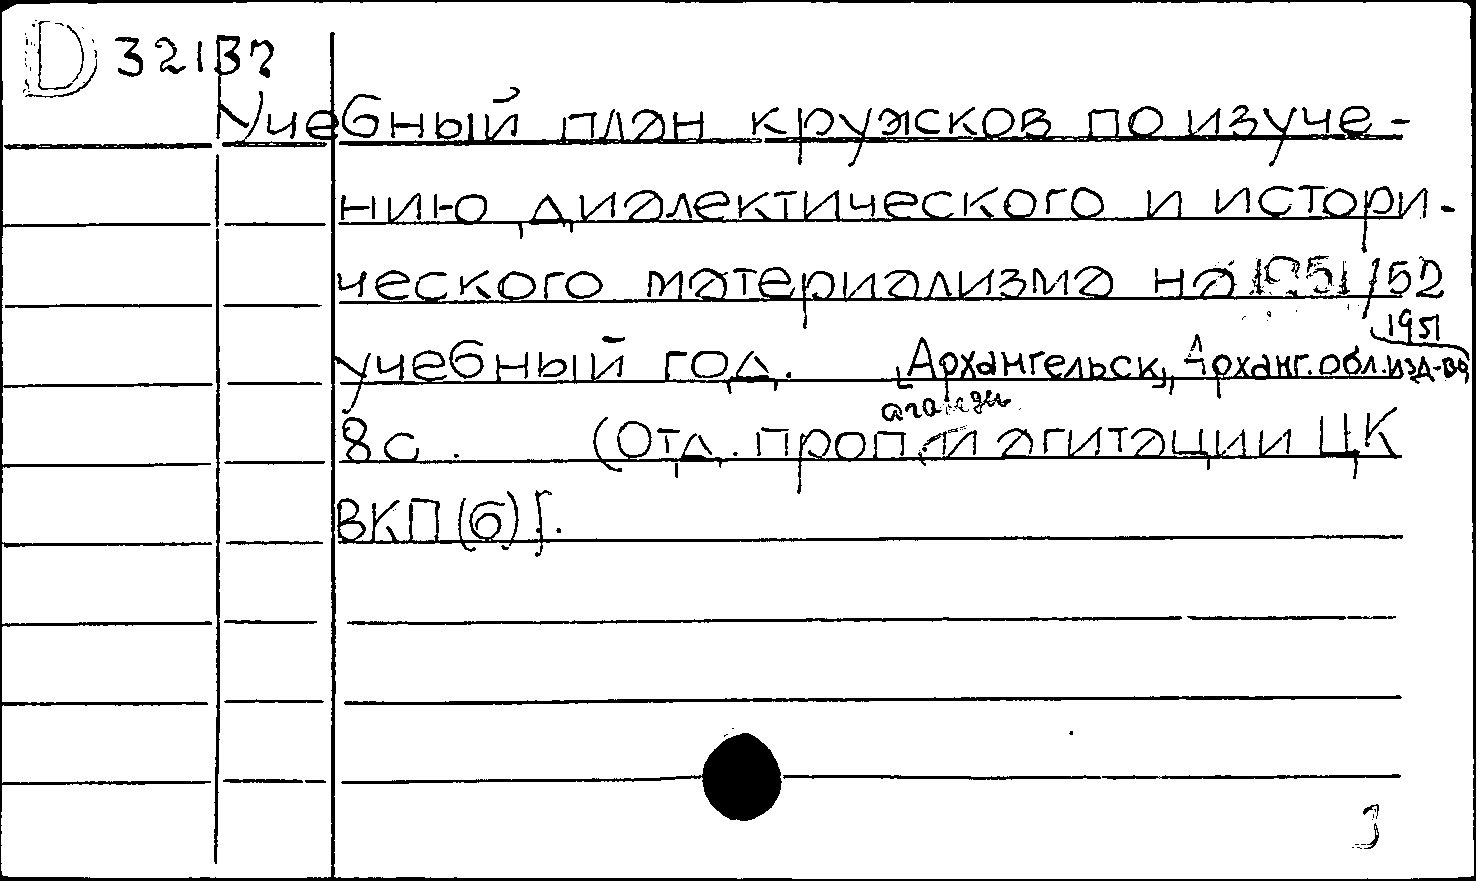 D 32137
Учебный план кружков по изуче-
нию диалектического и истори-
ческого материализма на 1951/52
учебный год. Архангельск, Арханг. обл. изд-во, 1951
8 с. (Отд. пропаганды и агитации ЦК
ВКП(б)).
3